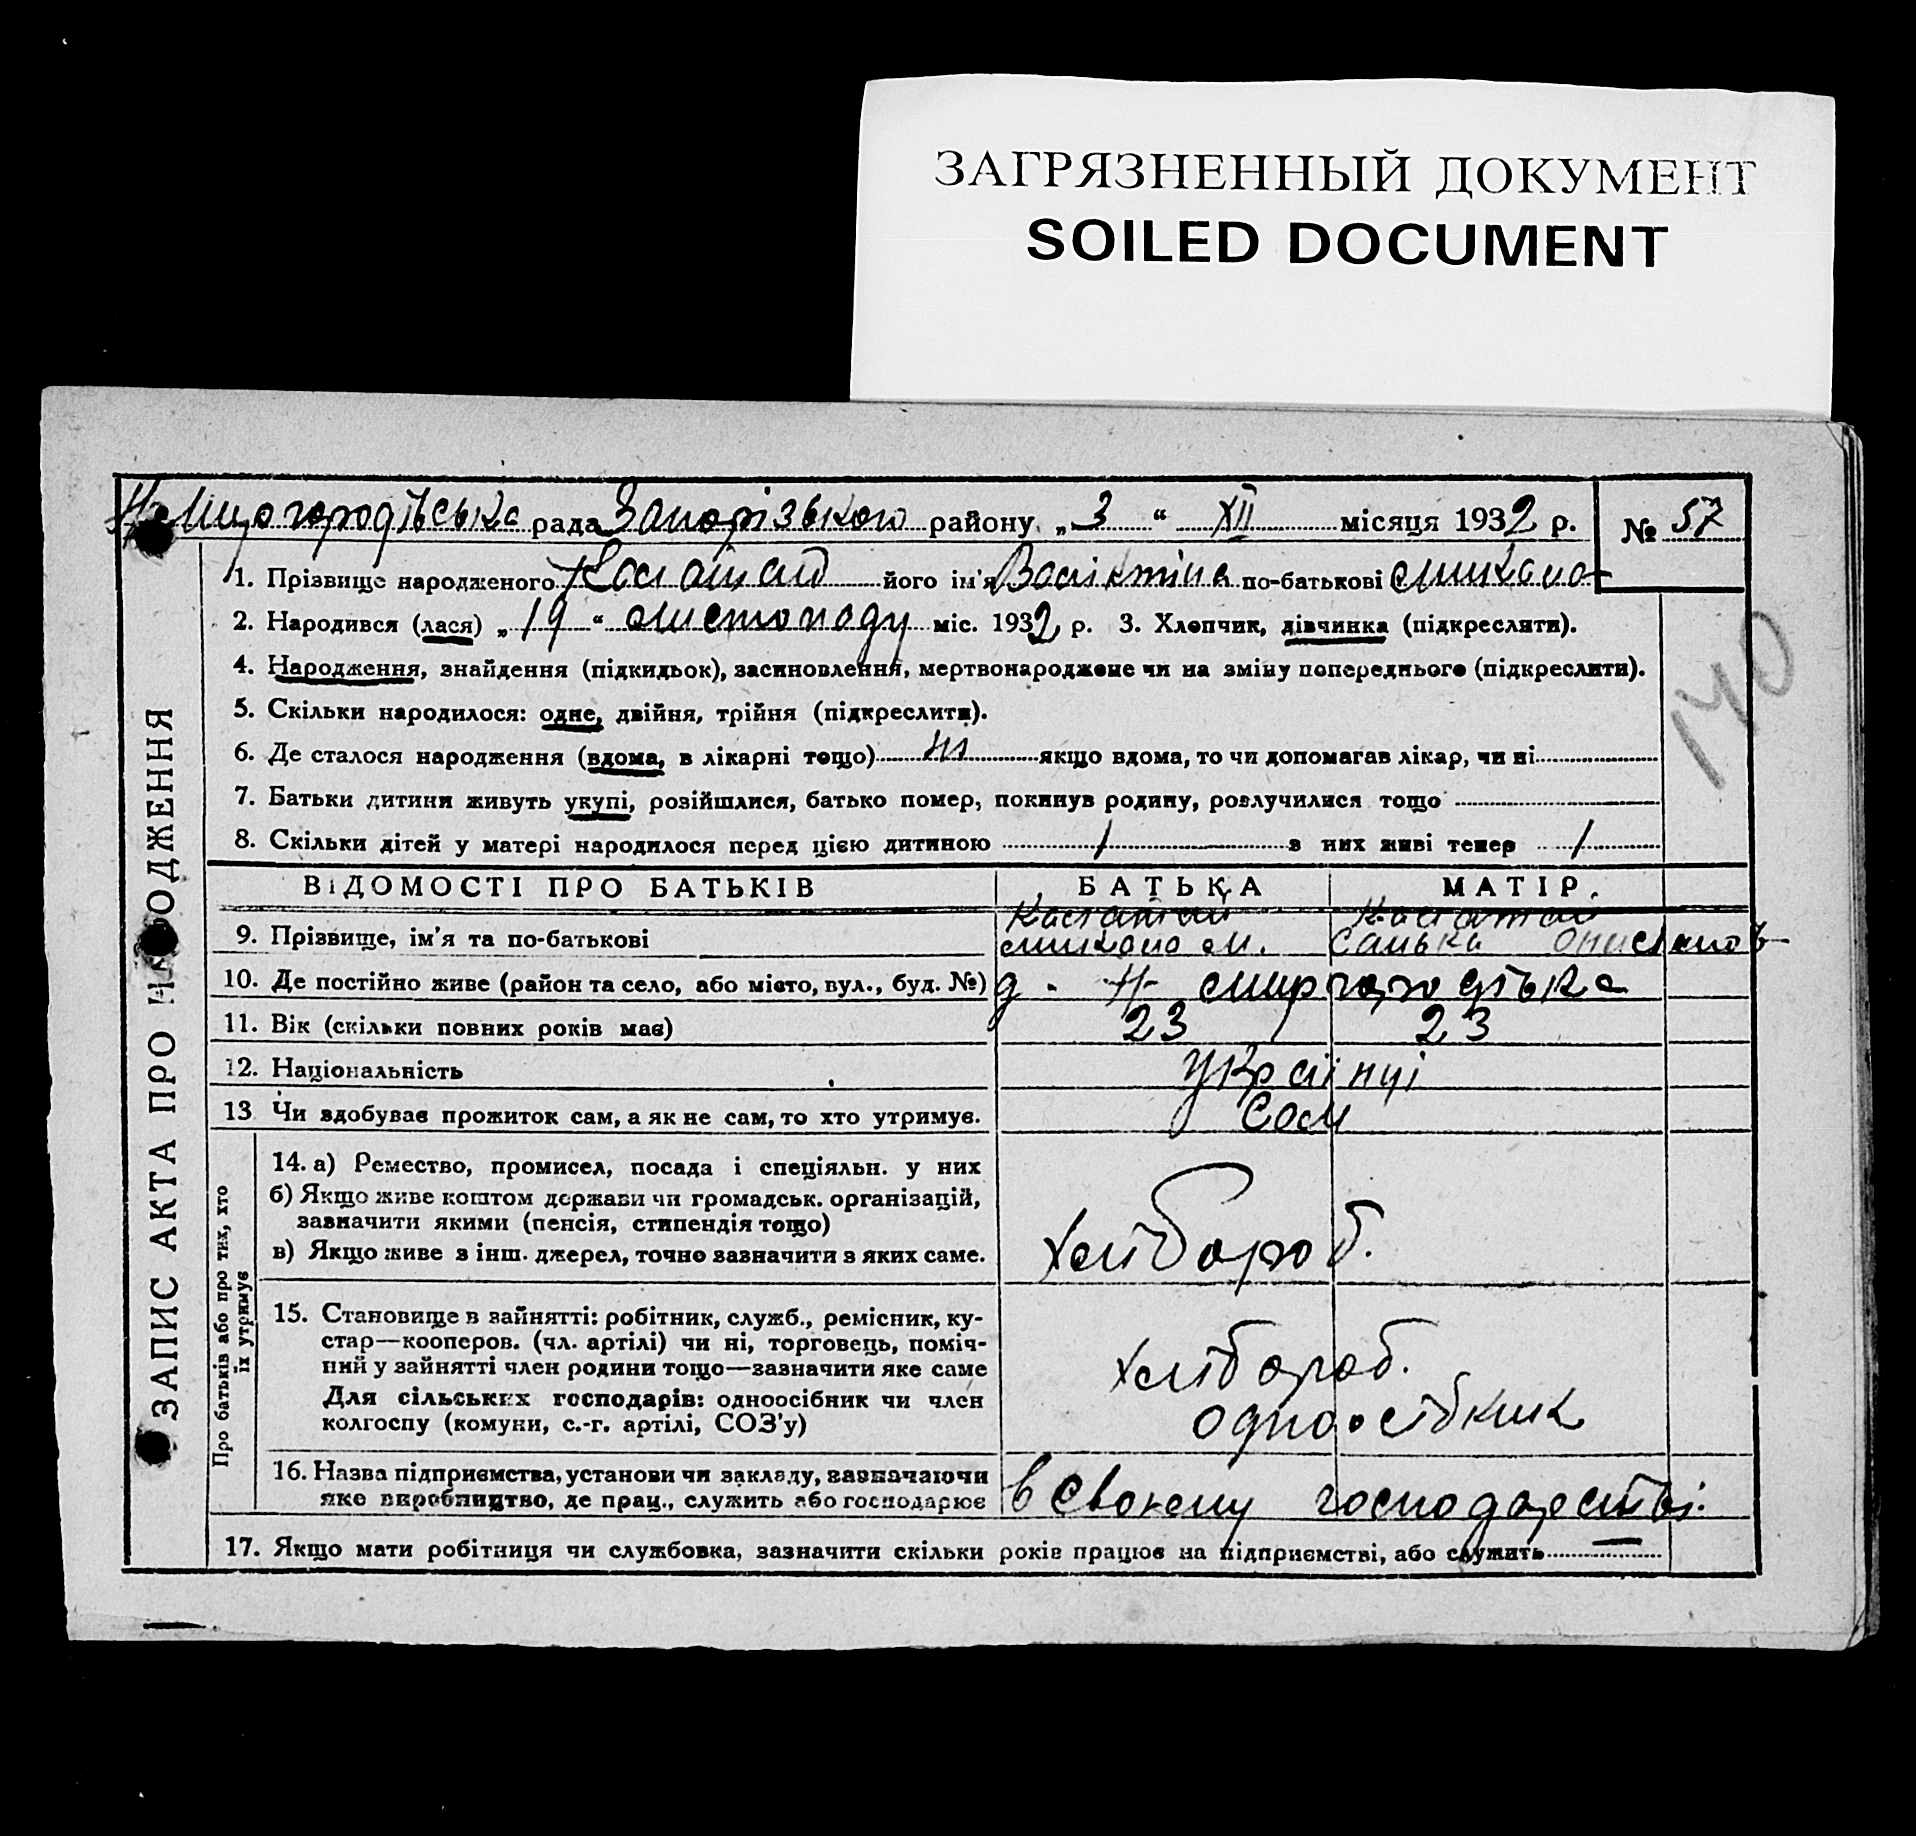 ЗАГРЯЗНЕННЫЙ ДОКУМЕНТ
SOILED DOCUMENT
рада Запорізького району „ 3 “ XII місяця 1932 р. № 57
1. Прізвище народженого його ім'я по-батькові
2. Народився (лася) „ 19 “ листопаду міс. 1932 р. 3. Хлопчик, дівчинка (підкреслити).
4. Народження, знайдення (підкидьок), засиновлення, мертвонароджене чи на зміну попереднього (підкреслити).
5. Скільки народилося: одне, двійня, трійня (підкреслити).
6. Де сталося народження (вдома, в лікарні тощо) якщо вдома, то чи допомагав лікар, чи ні
7. Батьки дитини живуть укупі, розійшлися, батько помер, покинув родину, розлучилися тощо
8. Скільки дітей у матері народилося перед цією дитиною 1 з них живі тепер 1
140
ЗАПИС АКТА ПРО НАРОДЖЕННЯ
ВІДОМОСТІ ПРО БАТЬКІВ БАТЬКА МАТІР.
9. Прізвище, ім'я та по-батькові
10. Де постійно живе (район та село, або місто, вул., буд. №)
11. Вік (скільки повних років має) 23 23
12. Національність Українці
13 Чи здобуває прожиток сам, а як не сам, то хто утримує. Сам
Про батьків або про тих, хто їх утримує
14. а) Ремество, промисел, посада і спеціяльн. у них
б) Якщо живе коштом держави чи громадськ. організацій,
зазначити якими (пенсія, стипендія тощо)
в) Якщо живе з інш. джерел, точно зазначити з яких саме.
хлібороб.
15. Становище в зайнятті: робітник, служб., ремісник, ку-
стар—кооперов. (чл. артілі) чи ні, торговець, поміч-
ний у зайнятті член родини тощо—зазначити яке саме
хлібороб.
Для сільських господарів: одноосібник чи член
колгоспу (комуни, с.-г. артілі, СОЗ'у)
одноосібник
16. Назва підприємства, установи чи закладу, зазначаючи
яке виробництво, де прац., служить або господарює
в своєму господарстві.
17. Якщо мати робітниця чи службовка, зазначити скільки років працює на підприємстві, або служить —